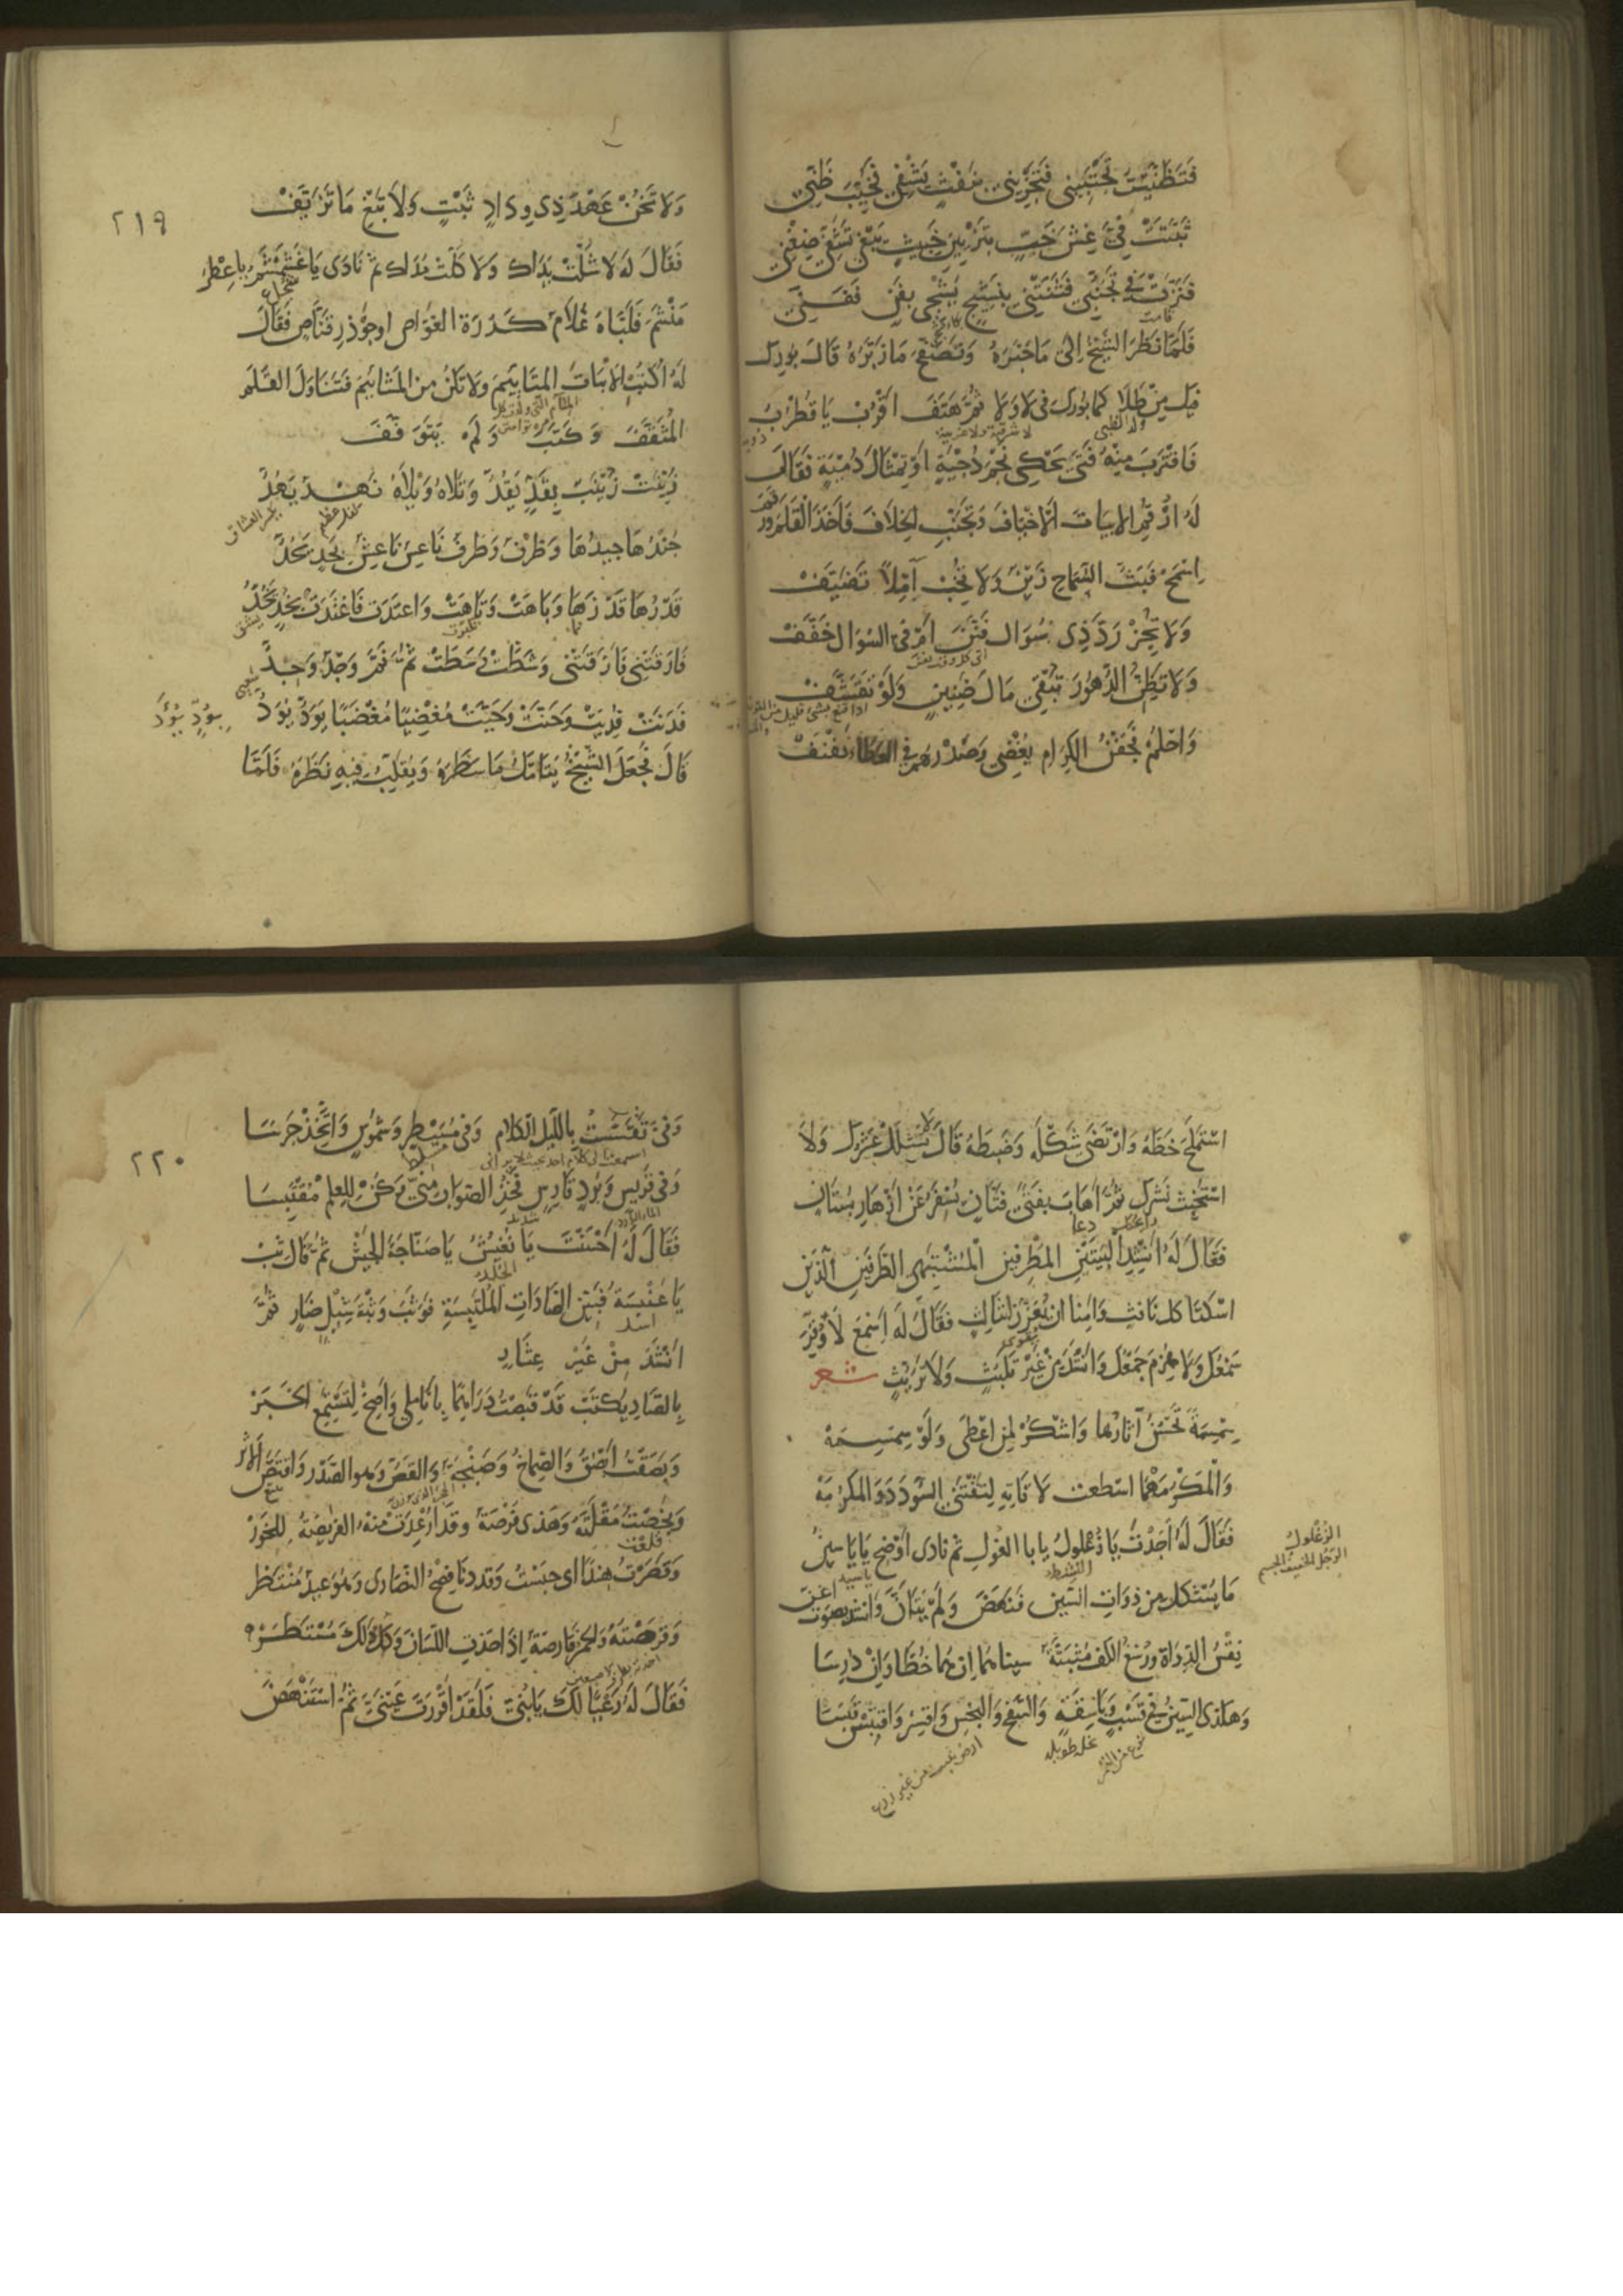 فَتَظَنَّيْتُ تَجْتَبِينِي فَتَجْزِينِي بِنَفْثٍ يَشْفِي فَخَيَّبَ ظَنِّي
ثَبَّتَتْ فِيَّ غِشَّ جَيْبٍ بِتَزْيِينِ خَبِيثٍ يَبْغِي تَشَفِّيَ ضِغْنِ
فَنَزَتْ فِي تَجَنُّبِي فَثَنَتْنِي بِنَشِيجٍ يُشْجِي بِفَنٍّ فَفَنِّ
فَلَمَّا نَظَرَ الشَّيْخُ اِلَى مَا حَبَّرَهُ وَتَصَفَّحَ مَا زَبَرَهُ قَالَ بُورِكَ
فِيكَ مِنْ طَلًا كَمَا بُورِكَ فِي لَا وَلَا ثُمَّ هَتَفَ اقْرُبْ يَا قُطْرُبُ
ولد الظبي
لا شرقية ولا غربية
فَاقْتَرَبَ مِنْهُ فَتًى يَحْكِي نَجْمَ دُجْيَةٍ اَوْ تِمْثَالَ دُمْيَةٍ فَقَالَ
لَهُ ارْقُمِ الابيَاتَ الاَخْيَافَ وَتَجَنَّبِ الخِلَافَ فَاَخَذَ القَلَمَ وَرَقَمَ
اِسْمَحْ فَبَثُّ السَّمَاحِ زَيْنٌ وَلَا تُخِبْ آمِلًا تَضَيَّفْ
وَلَا تُجِزْ رَدَّ ذِي سُؤَالٍ فَنَّنَ اَمْ فِي السُؤَالِ خَفَّفْ
وَلَا تَظُنَّ الدُّهُورَ تُبْقِي مَالَ ضَنِينٍ وَلَوْ تَقَشَّفْ
وَاحْلُمْ فَجَفْنُ الكِرَامِ يُغْضِي وَصَدْرُهُمْ فِي العَطَاءِ نَفْنَفْ
وَلَا تَخُنْ عَهْدَ ذِي وِدَادٍ ثَبْتٍ وَلَا تَبْغِ مَا تَزَيَّفْ
٢١٩
فَقَالَ لَهُ لَا شُلَّتْ يَدَاكَ وَلَا كَلَّتْ مُدَاكَ ثُمَّ نَادَى يَا غَشَمْشَمُ يَا عِطْرَ
مَنْشَمَ فَلَبَّاهُ غُلَامٌ كَدُرَّةِ الغَوَّاصِ اوجُؤْذُرِ قَنَّاصٍ فَقَالَ
لَهُ اكْتُبِ الاَبْيَاتَ المَتَائِيمَ وَلَا تَكُنْ مِنَ المَشَائِيمِ فَتَنَاوَلَ القَلَمَ
المُثَقَّفَ وَكَتَبَ وَلَمْ يَتَوَقَّفْ
زُيِّنَتْ زَيْنَبٌ بِقَدٍّ يَقُدُّ وَتَلَاهُ وَيْلَاهُ نَهْدٌ يَهُدُّ
جُنْدُهَا جِيدُهَا وَظَرْفٌ وَطَرْفٌ نَاعِسٌ نَاعِشٌ بِحَدٍّ يَحُدُّ
قَدْرُهَا قَدْ زَهَا وَبَاهَتْ وَتَاهَتْ وَاعْتَدَتْ فَاغْتَدَتْ بِخَدٍّ يَخُدُّ
فَارَقَتْنِي فَاَرَّقَتْنِي وَشَطَّتْ وَسَطَتْ ثُمَّ نَمَّ وَجْدٌ وَجِدُّ
فَدَنَتْ فُدِيَتْ وَحَنَّتْ وَحَيَّتْ مُغْضِبًا مُغْضَبًا يَوَدُّ يُوَدُّ
قَالَ فَجَعَلَ الشَّيْخُ يَتَامَّلُ مَا سَطَرَهُ وَيُقَلِّبُ فِيهِ نَظَرَهُ فَلَمَّا
اسْتَمْلَحَ خَطَّهُ وَارْتَضَى شَكْلَهُ وَضَبْطَهُ قَالَ لَا شَلَّ عَشْرُكَ وَلَا
اسْتُخْبِثَ نَشْرُكَ ثُمَّ اَهَابَ بِفَتًى فَتَّانٍ يُسْفِرُ عَنْ اَزْهَارِ بُسْتَانٍ
فَقَالَ لَهُ اَنْشِدِ البَيْتَيْنِ المُطْرِفَيْنِ المُشْتَبِهَيِ الطَّرَفَيْنِ الَّذَيْنِ
اسْكَتَا كل نَافِثٍ وَامِنَا ان يُعَزَّزَا بِثَالِثٍ فَقَالَ لَهُ اسْمَعْ لَا وُقِرَ
سَمْعُكَ وَلَا هُزِمَ جَمْعُكَ وَانْشَدَ مِنْ غَيْرِ تَلَبُّثٍ وَلَا تَرَيُّثٍ شعر
سِمْ سِمَةً تُحْسِنُ آثَارَهَا وَاشْكُرْ لِمَنْ اَعْطَى وَلَوْ سِمْسِمَهْ
وَالمَكْرُ مَهْمَا اسْطعت لَا تَاتِهِ لِتَقْتَنِي السُّؤْدَدَ وَالمَكْرُمَهْ
فَقَالَ لَهُ اَجَدْتَ يَا زُغْلُولُ يا ابا الغُولِ ثم نادى اَوْضِحْ يَا يَاسِينُ
الزُغْلُولُ
الرجل الخفيف الجسم
مَا يُشْكِلُ مِنْ ذَوَاتِ السِّينِ فَنَهَضَ وَلَمْ يَتَاَنَّ وَانشد بصوت اغنّ
نِقْسُ الدَّوَاةِ وَرُسْغُ الكَفِّ مُثْبَتَةٌ سيناهما اِنْ هُمَا خُطَّا وَاِنْ دُرِسَا
وَهَكَذَا السِّينُ فِي قَسْبٍ وَبَاسِقَةٍ وَالسَّفْحِ وَالبَخْسِ وَاقْسِرْ وَاقْتَبِسْ قَبَسَا
نخله طويله
ارض نبت من غير زرع
وَفِي تَقَسَّسْتُ بِاللَّيْلِ الكَلَامَ وَفِي مُسَيْطِرٍ وَشَمُوسٍ وَاتَّخِذْ جَرَسَا
٢٢٠
وَفِي قَرِيسٍ وَبَرْدٍ قَارِسٍ فَخُذِ الصَّوَابَ مِنِّي وَكُنْ لِلعِلْمِ مُقْتَبِسَا
فَقَالَ لَهُ اَحْسَنْتَ يَا نُغَيْشُ يَا صَنَّاجَةَ الجَيْشِ ثُمَّ قَالَ ثِبْ
يَا عَنْبَسَةُ فَبَيِّنِ الصَّادَاتِ المُلْتَبِسَةِ فَوَثَبَ وَثْبَةَ شِبْلٍ ضَارٍ ثُمَّ
اَنْشَدَ مِنْ غَيْرِ عِثَارٍ
بِالصَّادِ يُكْتَبُ قَدْ قَبَصْتُ دَرَاهِمًا بِاَنَامِلِي وَاَصِخْ لِتَسْتَمِعَ الخَبَرْ
وَبَصَقْتُ اَبْصُقُ وَالصِّمَاخُ وَصَنْجَةٌ وَالقَصُّ وهو الصَّدْرُ وَاقْتَصَّ الاَثَرْ
وَبَخَصْتُ مُقْلَتَهُ وَهَذِي فُرْصَةٌ وَقَدْ اُرْعِدَتْ مِنْهُ الفَرِيصَةُ لِلخَوَرْ
وَقَصَرْتُ هِنْدًا اي حَبَسْتُ وَقَدْ دَنَا فِصْحُ النَّصَارَى وَهْوَ عِيدٌ مُنْتَظَرْ
وَقَرَصْتُهُ وَالخَمْرُ قَارِصَةٌ اِذَا حَذَتِ اللِّسَانَ وَكُلُّ ذَلِكَ مُسْتَطَرْ
فَقَالَ لَهُ رَعْيًا لَكَ يَا بُنَيَّ فَلَقَدْ اَقْرَرْتَ عَيْنَيَّ ثُمَّ اسْتَنْهَضَ